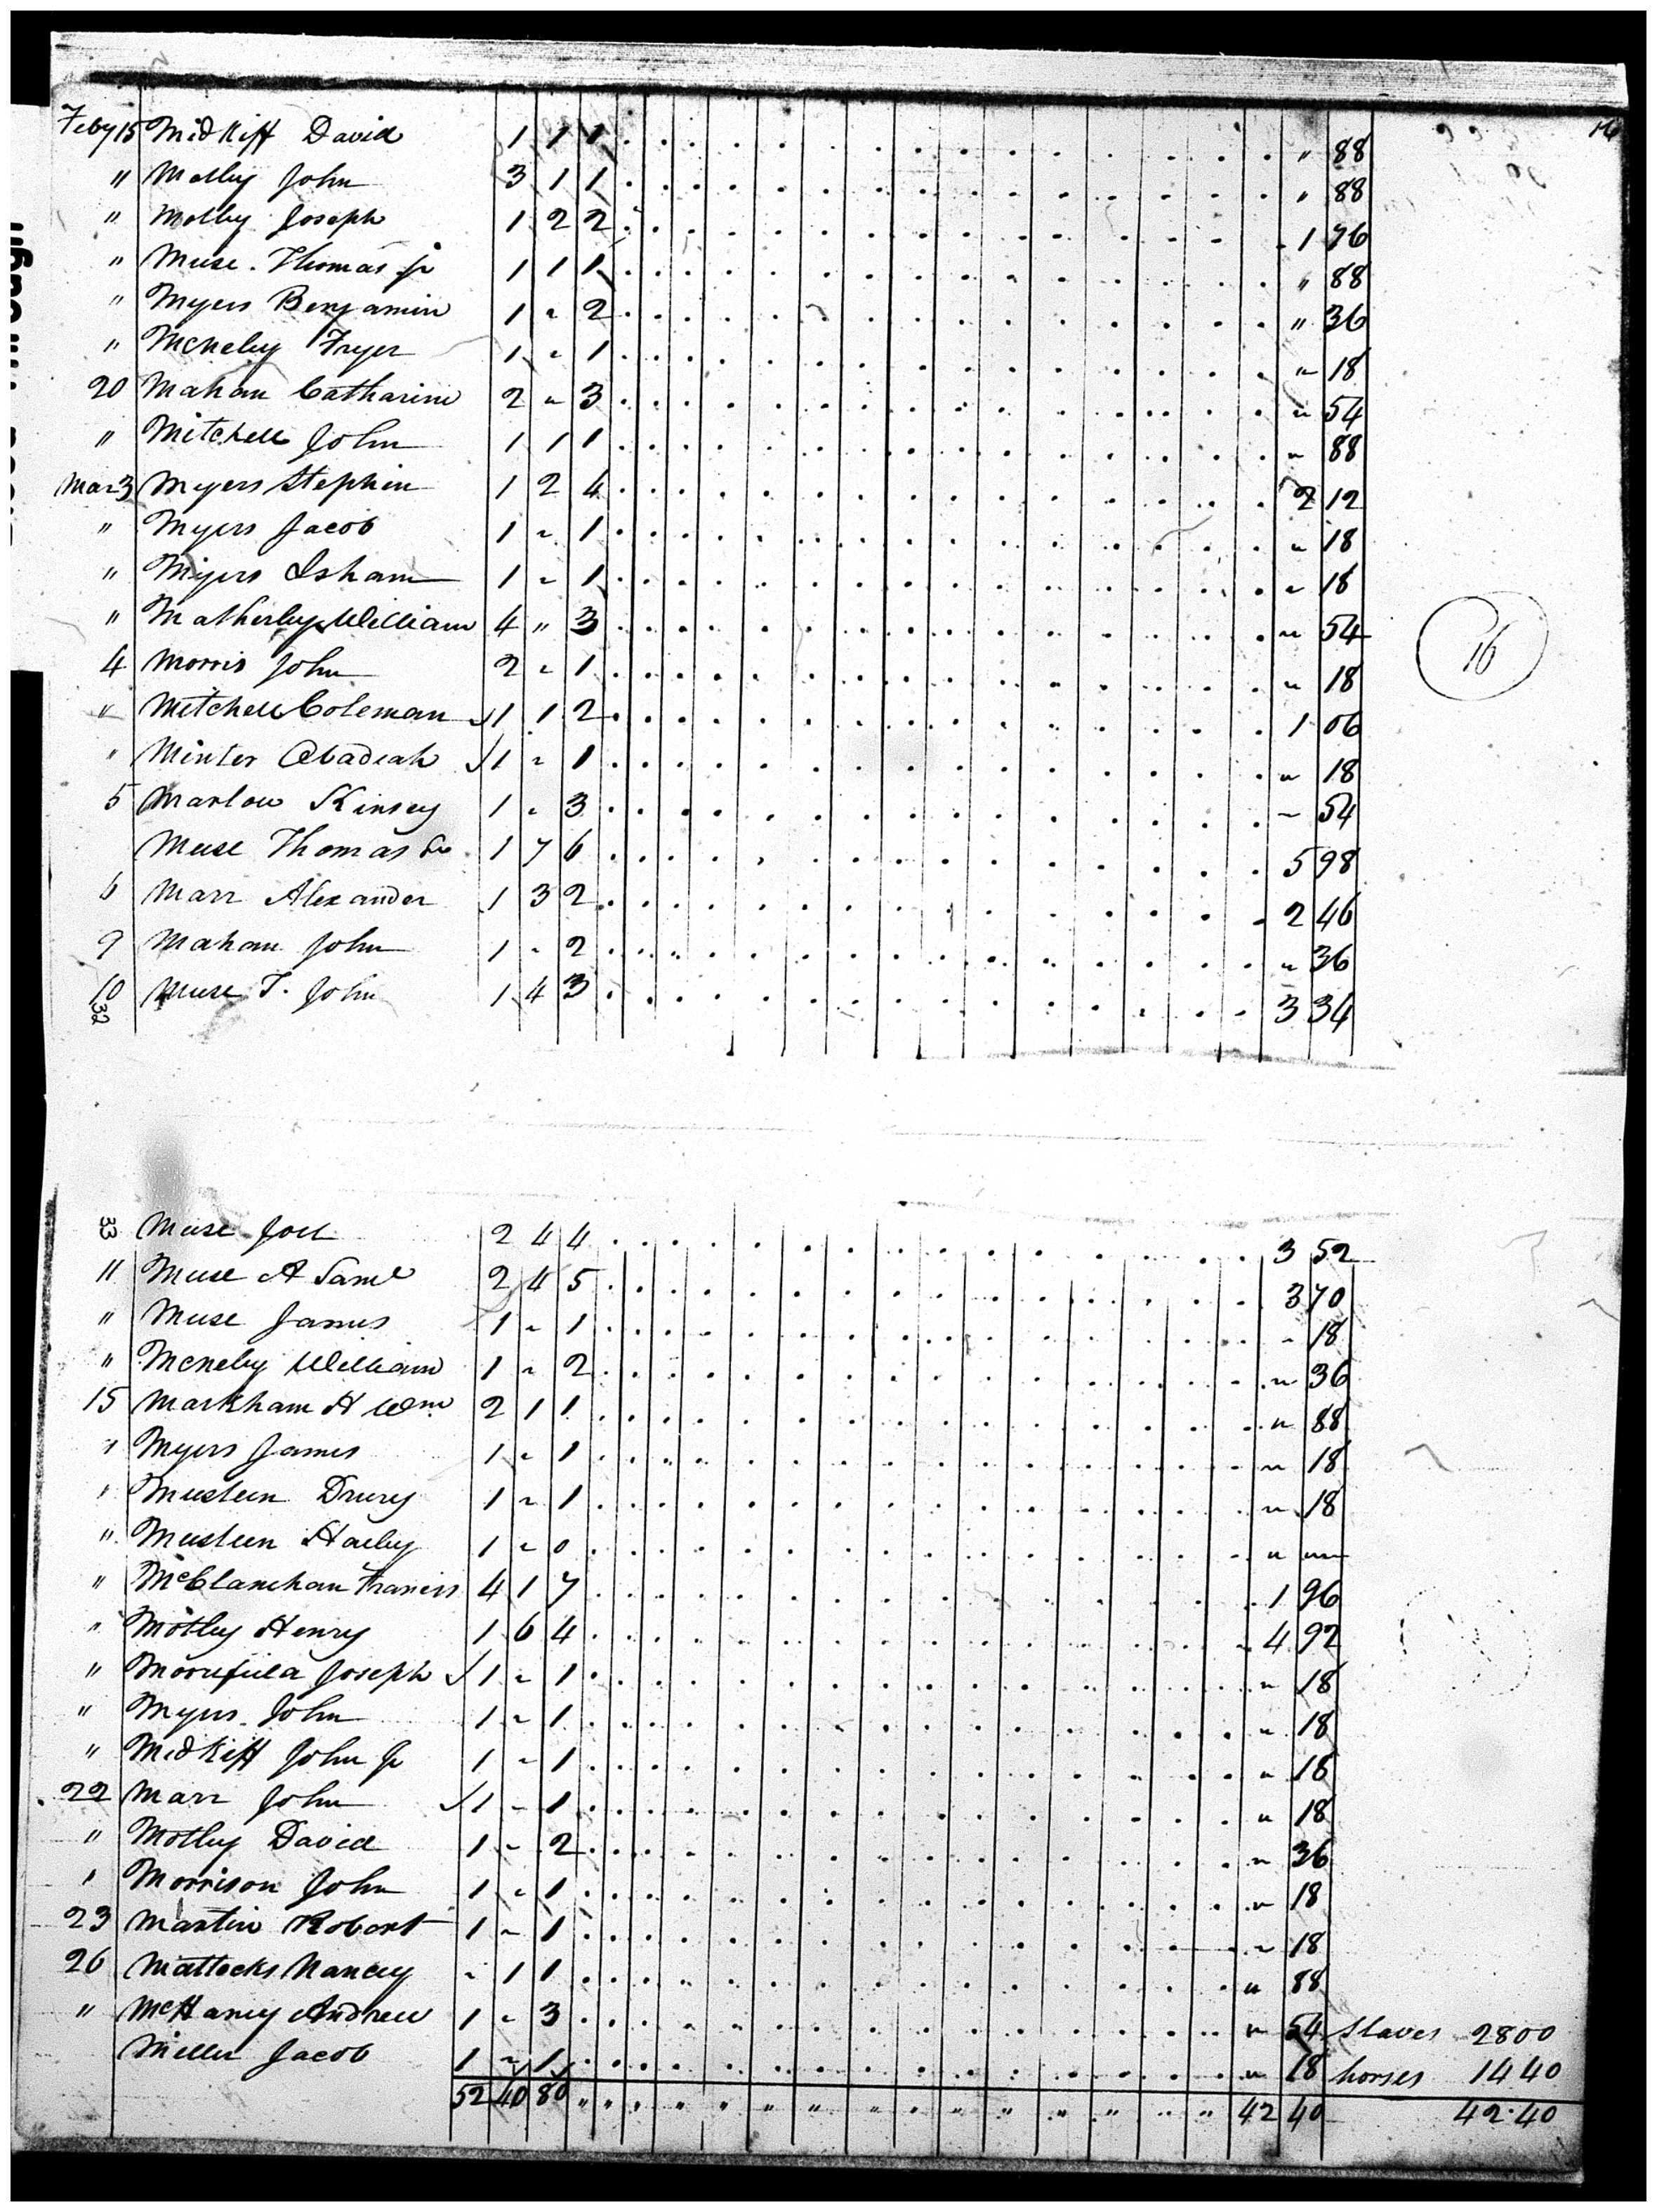 14
Feby 15 Midkiff David 1 1 1 " 88
" Motley John 3 1 1 " 88
" Motley Joseph 1 2 2 1 76
" Muse Thomas Jr 1 1 1 " 88
" Myers Benjamin 1 " 2 " 36
" McNeley Fryer 1 " 1 " 18
20 Mahan Catharine 2 " 3 " 54
" Mitchell John 1 1 1 " 88
Mar 3 Myers Stephen 1 2 4 2 12
" Myers Jacob 1 " 1 " 18
" Myers Isham 1 " 1 " 18
" Matherley William 4 " 3 " 54
16
4 Morris John 2 " 1 " 18
" Mitchell Coleman 1 1 2 1 06
" Minter Obadiah 1 " 1 " 18
5 Marlow Kinsey 1 " 3 " 54
Muse Thomas Sr 1 7 6 5 98
6 Marr Alexander 1 3 2 2 46
9 Mahan John 1 " 2 " 36
10 Muse T. John 1 4 3 3 34
32
33 Muse Joel 2 4 4 3 52
11 Muse A Saml 2 4 5 3 70
" Muse James 1 " 1 " 18
" McNeley William 1 " 2 " 36
15 Markham H Wm 2 1 1 " 88
" Myers James 1 " 1 " 18
" Musteen Drury 1 " 1 " 18
" Musteen Haley 1 " 0 " "
" McClanahan Francis 4 1 7 1 96
" Motley Henry 1 6 4 4 92
" Joseph 1 " 1 " 18
" Myers John 1 " 1 " 18
" Midkiff John Jr 1 " 1 " 18
22 Marr John 1 " 1 " 18
" Motley David 1 " 2 " 36
" Morrison John 1 " 1 " 18
23 Martin Robert 1 " 1 " 18
26 Mattocks Nancy " 1 1 " 88
" McHaney Andrew 1 " 3 " 54 Slaves 28 00
Miller Jacob 1 " 1 " 18 horses 14 40
52 40 80 " " " " " " " " " " " " " " " 42 40 42.40